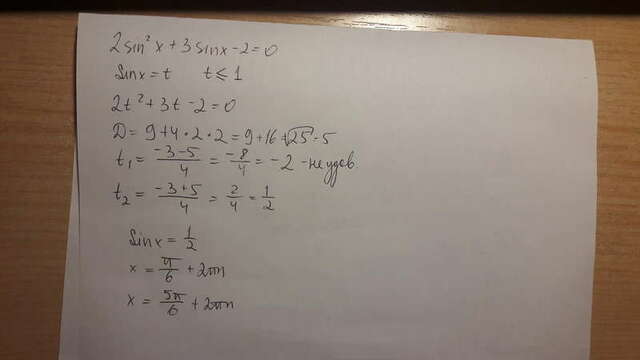 2sin²x+3sinx-2=0
sinx=t t⩽1
2t²+3t-2=0
D=9+4·2·2=9+16=√25=5
t₁=(-3-5)/4=-8/4=-2 -не удов.
t₂=(-3+5)/4=2/4=1/2
sinx=1/2
x=π/6+2πn
x=5π/6+2πn